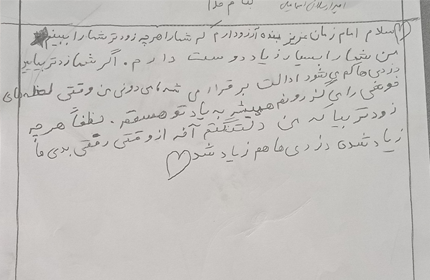 به نام خدا
سلام امام زمان عزیز بنده آرزو دارم که شما را هرچه زودتر شما را ببینم
من شما را بسیار زیاد دوست دارم. اگر شما زودتر بیایید
دزدی ها کم می شود ادالت برقرار می شه، می دونی من وقتی لحظه های
خوشی را می گذرونم همیشه به یاد تو هستم. لطفاً هرچه
زودتر بیا که من دلتنگتم آقا از وقتی رفتی بدی ها
زیاد شده دزدی ها هم زیاد شد